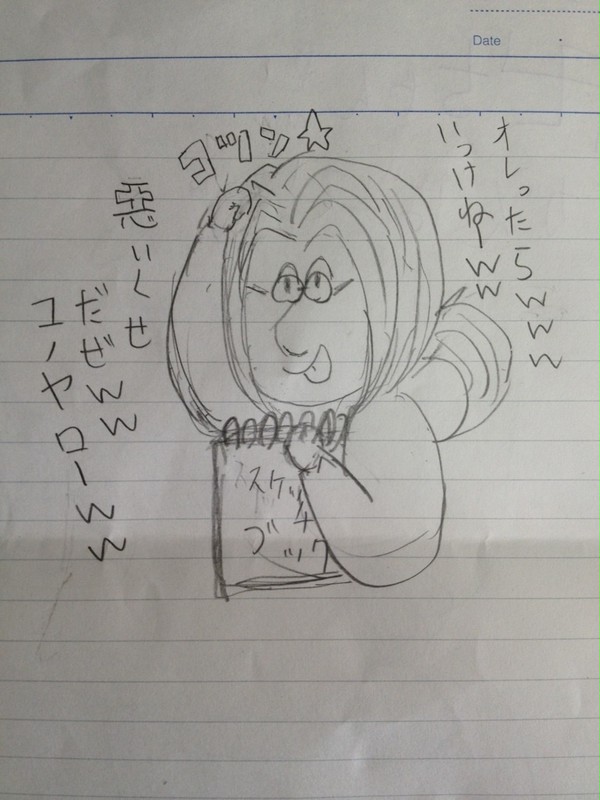 Date
オレったらwww
いっけねーww
悪いくせ
だぜww
コノヤローww
スケッチ
ブック